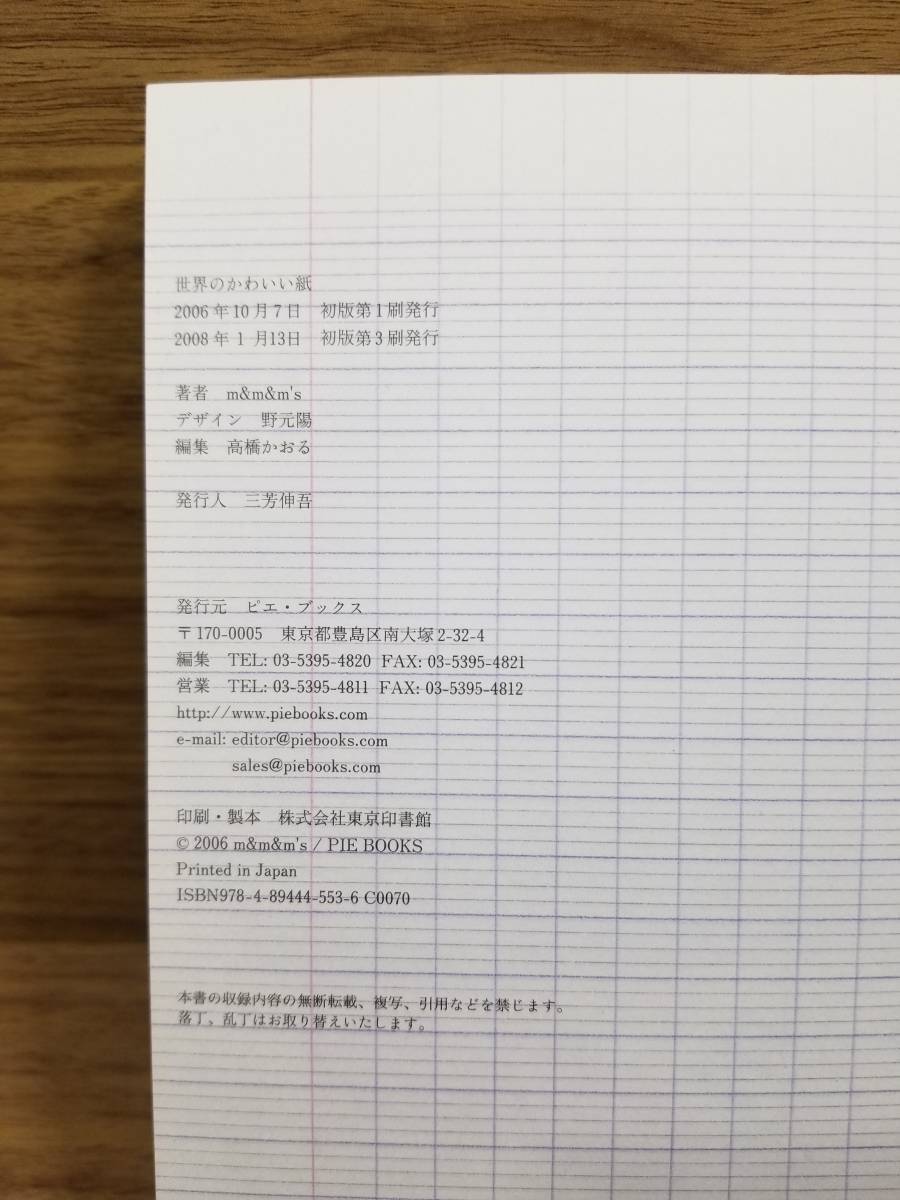 世界のかわいい紙
2006年10月7日　初版第1刷発行
2008年 1 月13日　初版第3刷発行
著者　m&m&m's
デザイン　野元陽
編集　高橋かおる
発行人　三芳伸吾
発行元　ピエ・ブックス
〒170-0005　東京都豊島区南大塚2-32-4
編集　TEL: 03-5395-4820 FAX: 03-5395-4821
営業　TEL: 03-5395-4811 FAX: 03-5395-4812
http://www.piebooks.com
e-mail: editor@piebooks.com
sales@piebooks.com
印刷・製本　株式会社東京印書館
© 2006 m&m&m's / PIE BOOKS
Printed in Japan
ISBN978-4-89444-553-6 C0070
本書の収録内容の無断転載、複写、引用などを禁じます。
落丁、乱丁はお取り替えいたします。